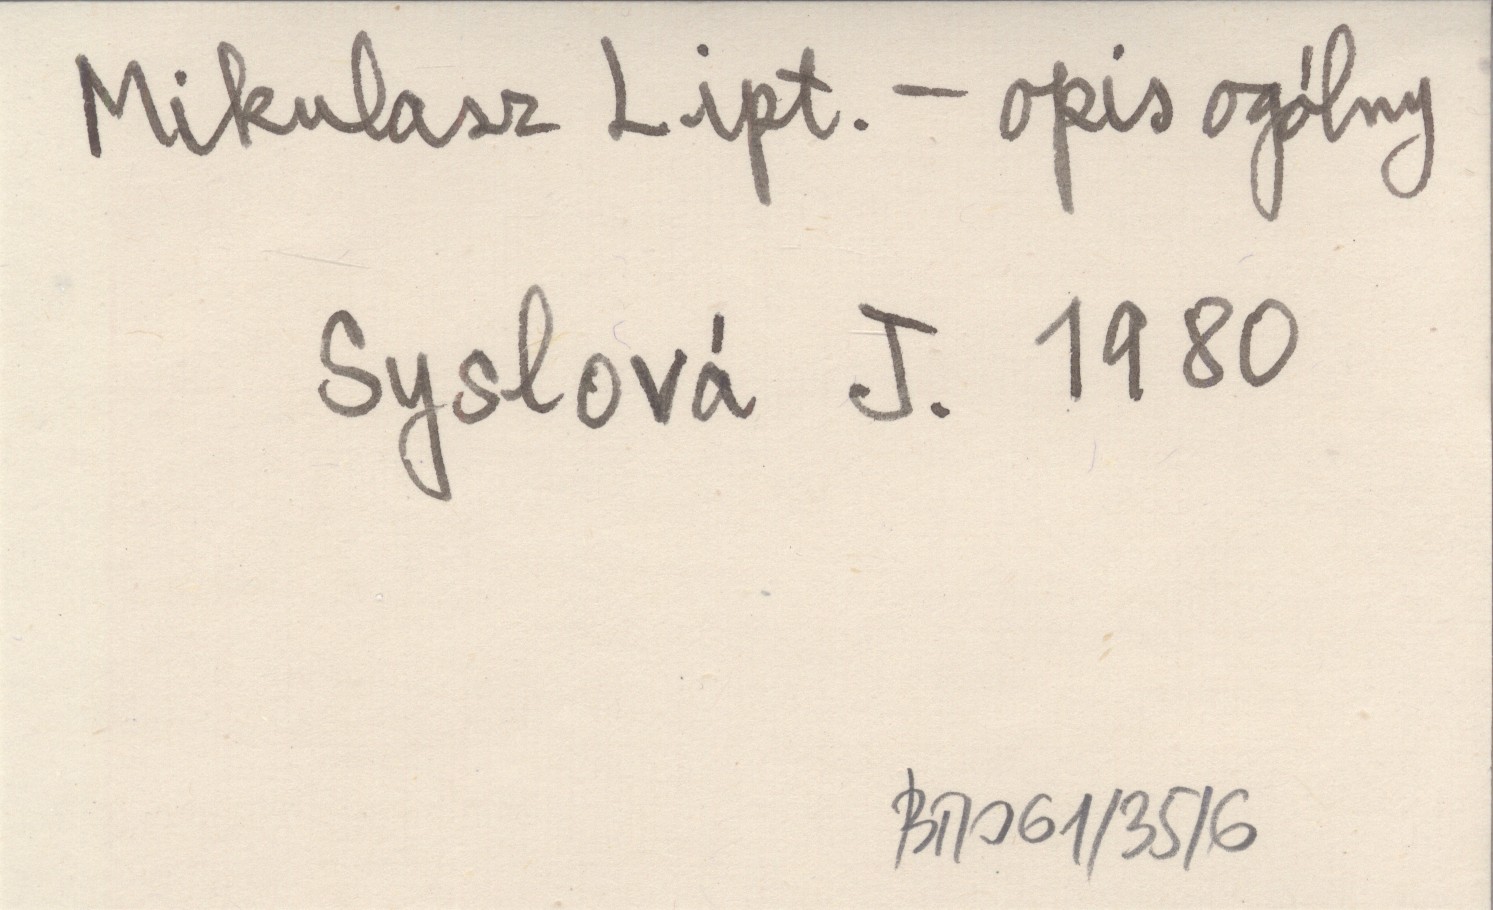 Mikulasz Lipt. – opis ogólny
Syslová J. 1980
061/35/6